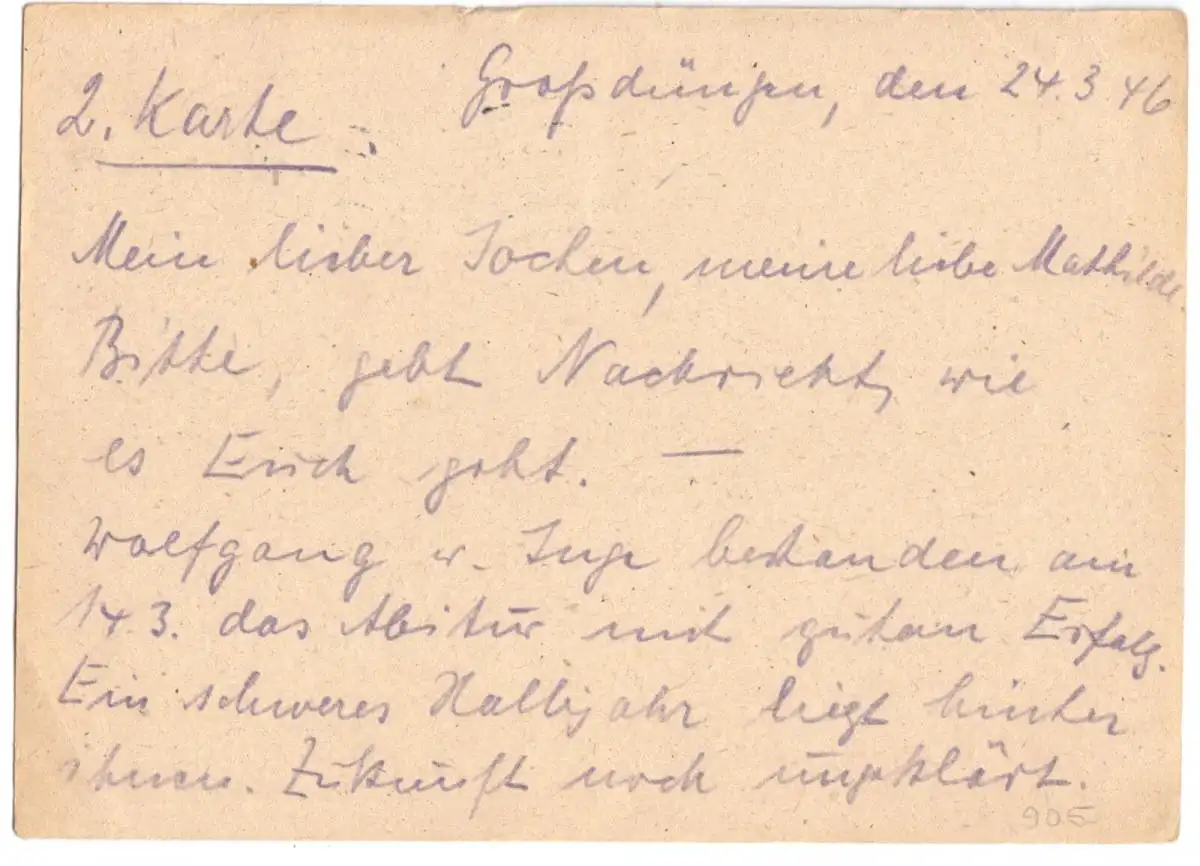 2. Karte.
Großdüngen, den 24.3 46
Mein lieber Jochen, meine liebe Mathilde.
Bitte, gebt Nachricht, wie
es Erich geht. —
Wolfgang u. Inge bestanden am
14.3. das Abitur mit gutem Erfolg.
Ein schweres Halbjahr liegt hinter
ihnen. Zukunft noch ungeklärt.
905